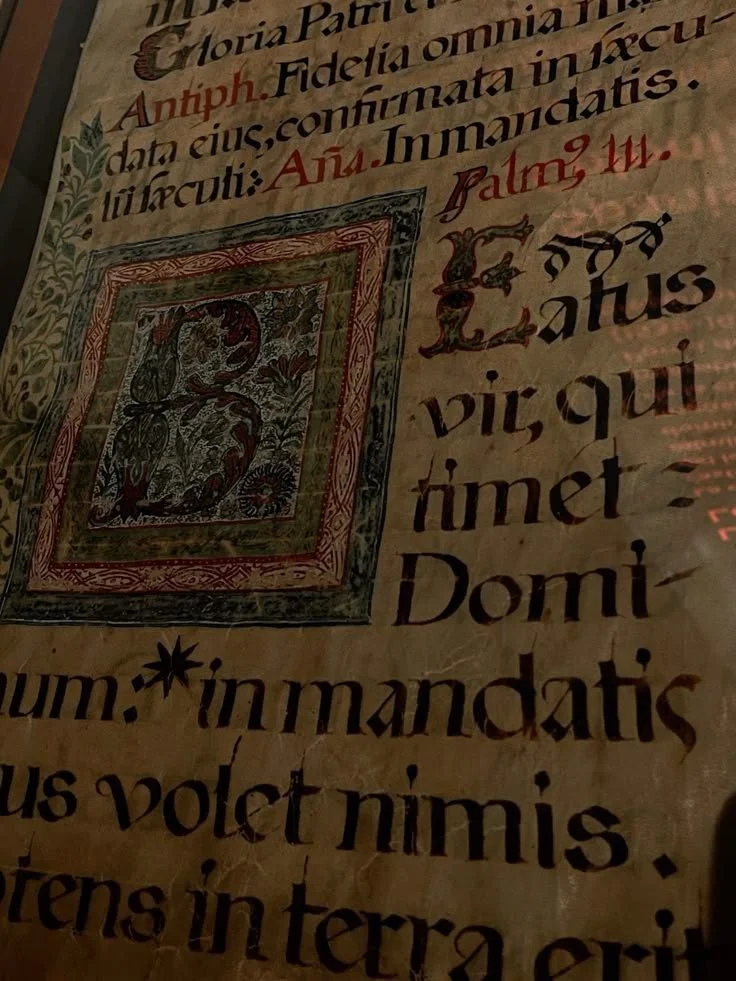 Gloria Patri
Antiph. Fidelia omnia
data eius, confirmata in sæcu-
lũ sæculi: Aña. In mandatis.
Psalmꝰ. 111.
BEatus
vir, qui
timet
Domi-
num: * in mandatis
us volet nimis.
tens in terra erit